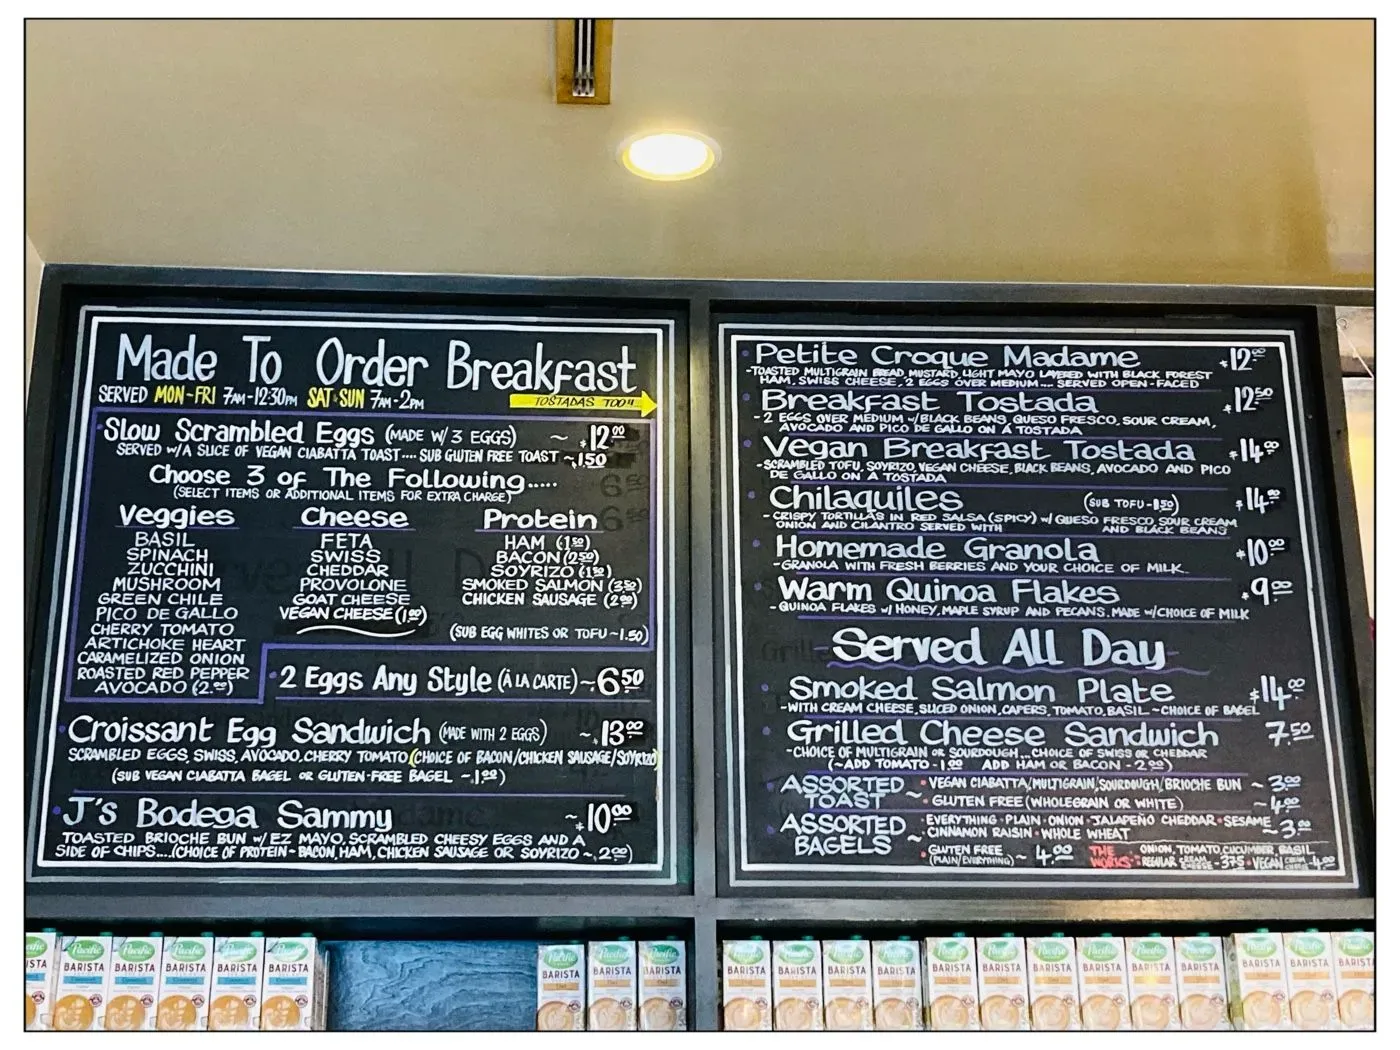 Made To Order Breakfast
SERVED MON-FRI 7AM-12:30PM SAT-SUN 7AM-2PM
TOSTADAS TOO!!
Slow Scrambled Eggs (MADE W/ 3 EGGS) ~ $12.00
SERVED W/A SLICE OF VEGAN CIABATTA TOAST.... SUB GLUTEN FREE TOAST ~ 1.50
Choose 3 of The Following.....
(SELECT ITEMS OR ADDITIONAL ITEMS FOR EXTRA CHARGE)
Veggies
BASIL
SPINACH
ZUCCHINI
MUSHROOM
GREEN CHILE
PICO DE GALLO
CHERRY TOMATO
ARTICHOKE HEART
CARAMELIZED ONION
ROASTED RED PEPPER
AVOCADO (2.00)
Cheese
FETA
SWISS
CHEDDAR
PROVOLONE
GOAT CHEESE
VEGAN CHEESE (1.00)
Protein
HAM (1.50)
BACON (2.50)
SOYRIZO (1.50)
SMOKED SALMON (3.50)
CHICKEN SAUSAGE (2.00)
(SUB EGG WHITES OR TOFU ~ 1.50)
2 Eggs Any Style (À LA CARTE) ~ 6.50
Croissant Egg Sandwich (MADE WITH 2 EGGS) ~ 13.00
SCRAMBLED EGGS, SWISS, AVOCADO, CHERRY TOMATO (CHOICE OF BACON/CHICKEN SAUSAGE/SOYRIZO)
(SUB VEGAN CIABATTA BAGEL OR GLUTEN-FREE BAGEL ~ 1.00)
J's Bodega Sammy ~ 10.00
TOASTED BRIOCHE BUN W/ EZ MAYO, SCRAMBLED CHEESY EGGS AND A
SIDE OF CHIPS....(CHOICE OF PROTEIN - BACON, HAM, CHICKEN SAUSAGE OR SOYRIZO ~ 2.00)
Petite Croque Madame $12.00
-TOASTED MULTIGRAIN BREAD, MUSTARD, LIGHT MAYO LAYERED WITH BLACK FOREST
HAM, SWISS CHEESE, 2 EGGS OVER MEDIUM.... SERVED OPEN-FACED
Breakfast Tostada $12.50
-2 EGGS OVER MEDIUM W/BLACK BEANS, QUESO FRESCO, SOUR CREAM,
AVOCADO AND PICO DE GALLO ON A TOSTADA
Vegan Breakfast Tostada $14.00
-SCRAMBLED TOFU, SOYRIZO, VEGAN CHEESE, BLACK BEANS, AVOCADO AND PICO
DE GALLO ON A TOSTADA
Chilaquiles (SUB TOFU - 1.50) $14.00
-CRISPY TORTILLAS IN RED SALSA (SPICY) W/ QUESO FRESCO, SOUR CREAM
ONION AND CILANTRO SERVED WITH AND BLACK BEANS
Homemade Granola $10.00
-GRANOLA WITH FRESH BERRIES AND YOUR CHOICE OF MILK
Warm Quinoa Flakes $9.00
-QUINOA FLAKES W/ HONEY, MAPLE SYRUP AND PECANS, MADE W/CHOICE OF MILK
Served All Day
Smoked Salmon Plate $14.00
-WITH CREAM CHEESE, SLICED ONION, CAPERS, TOMATO, BASIL ~ CHOICE OF BAGEL
Grilled Cheese Sandwich 7.50
-CHOICE OF MULTIGRAIN OR SOURDOUGH... CHOICE OF SWISS OR CHEDDAR
(~ADD TOMATO - 1.00 ADD HAM OR BACON - 2.00)
ASSORTED TOAST ~ • VEGAN CIABATTA/MULTIGRAIN/SOURDOUGH/BRIOCHE BUN ~ 3.00
• GLUTEN FREE (WHOLEGRAIN OR WHITE) ~ 4.00
ASSORTED BAGELS ~ EVERYTHING • PLAIN • ONION • JALAPEÑO CHEDDAR • SESAME
CINNAMON RAISIN • WHOLE WHEAT ~ 3.00
• GLUTEN FREE (PLAIN/EVERYTHING) ~ 4.00
THE WORKS: ONION, TOMATO, CUCUMBER, BASIL
REGULAR CREAM CHEESE - 3.75 • VEGAN CREAM CHEESE - 4.00
Pacific
BARISTA